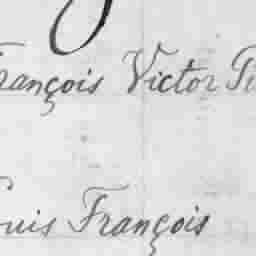 François Victor
Louis François